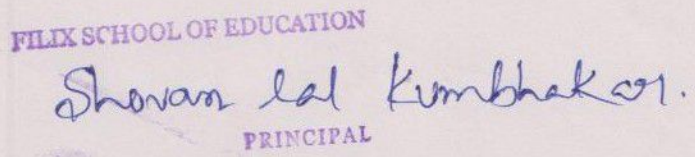 FILIX SCHOOL OF EDUCATION
Shovan lal Kumbhakar.
PRINCIPAL